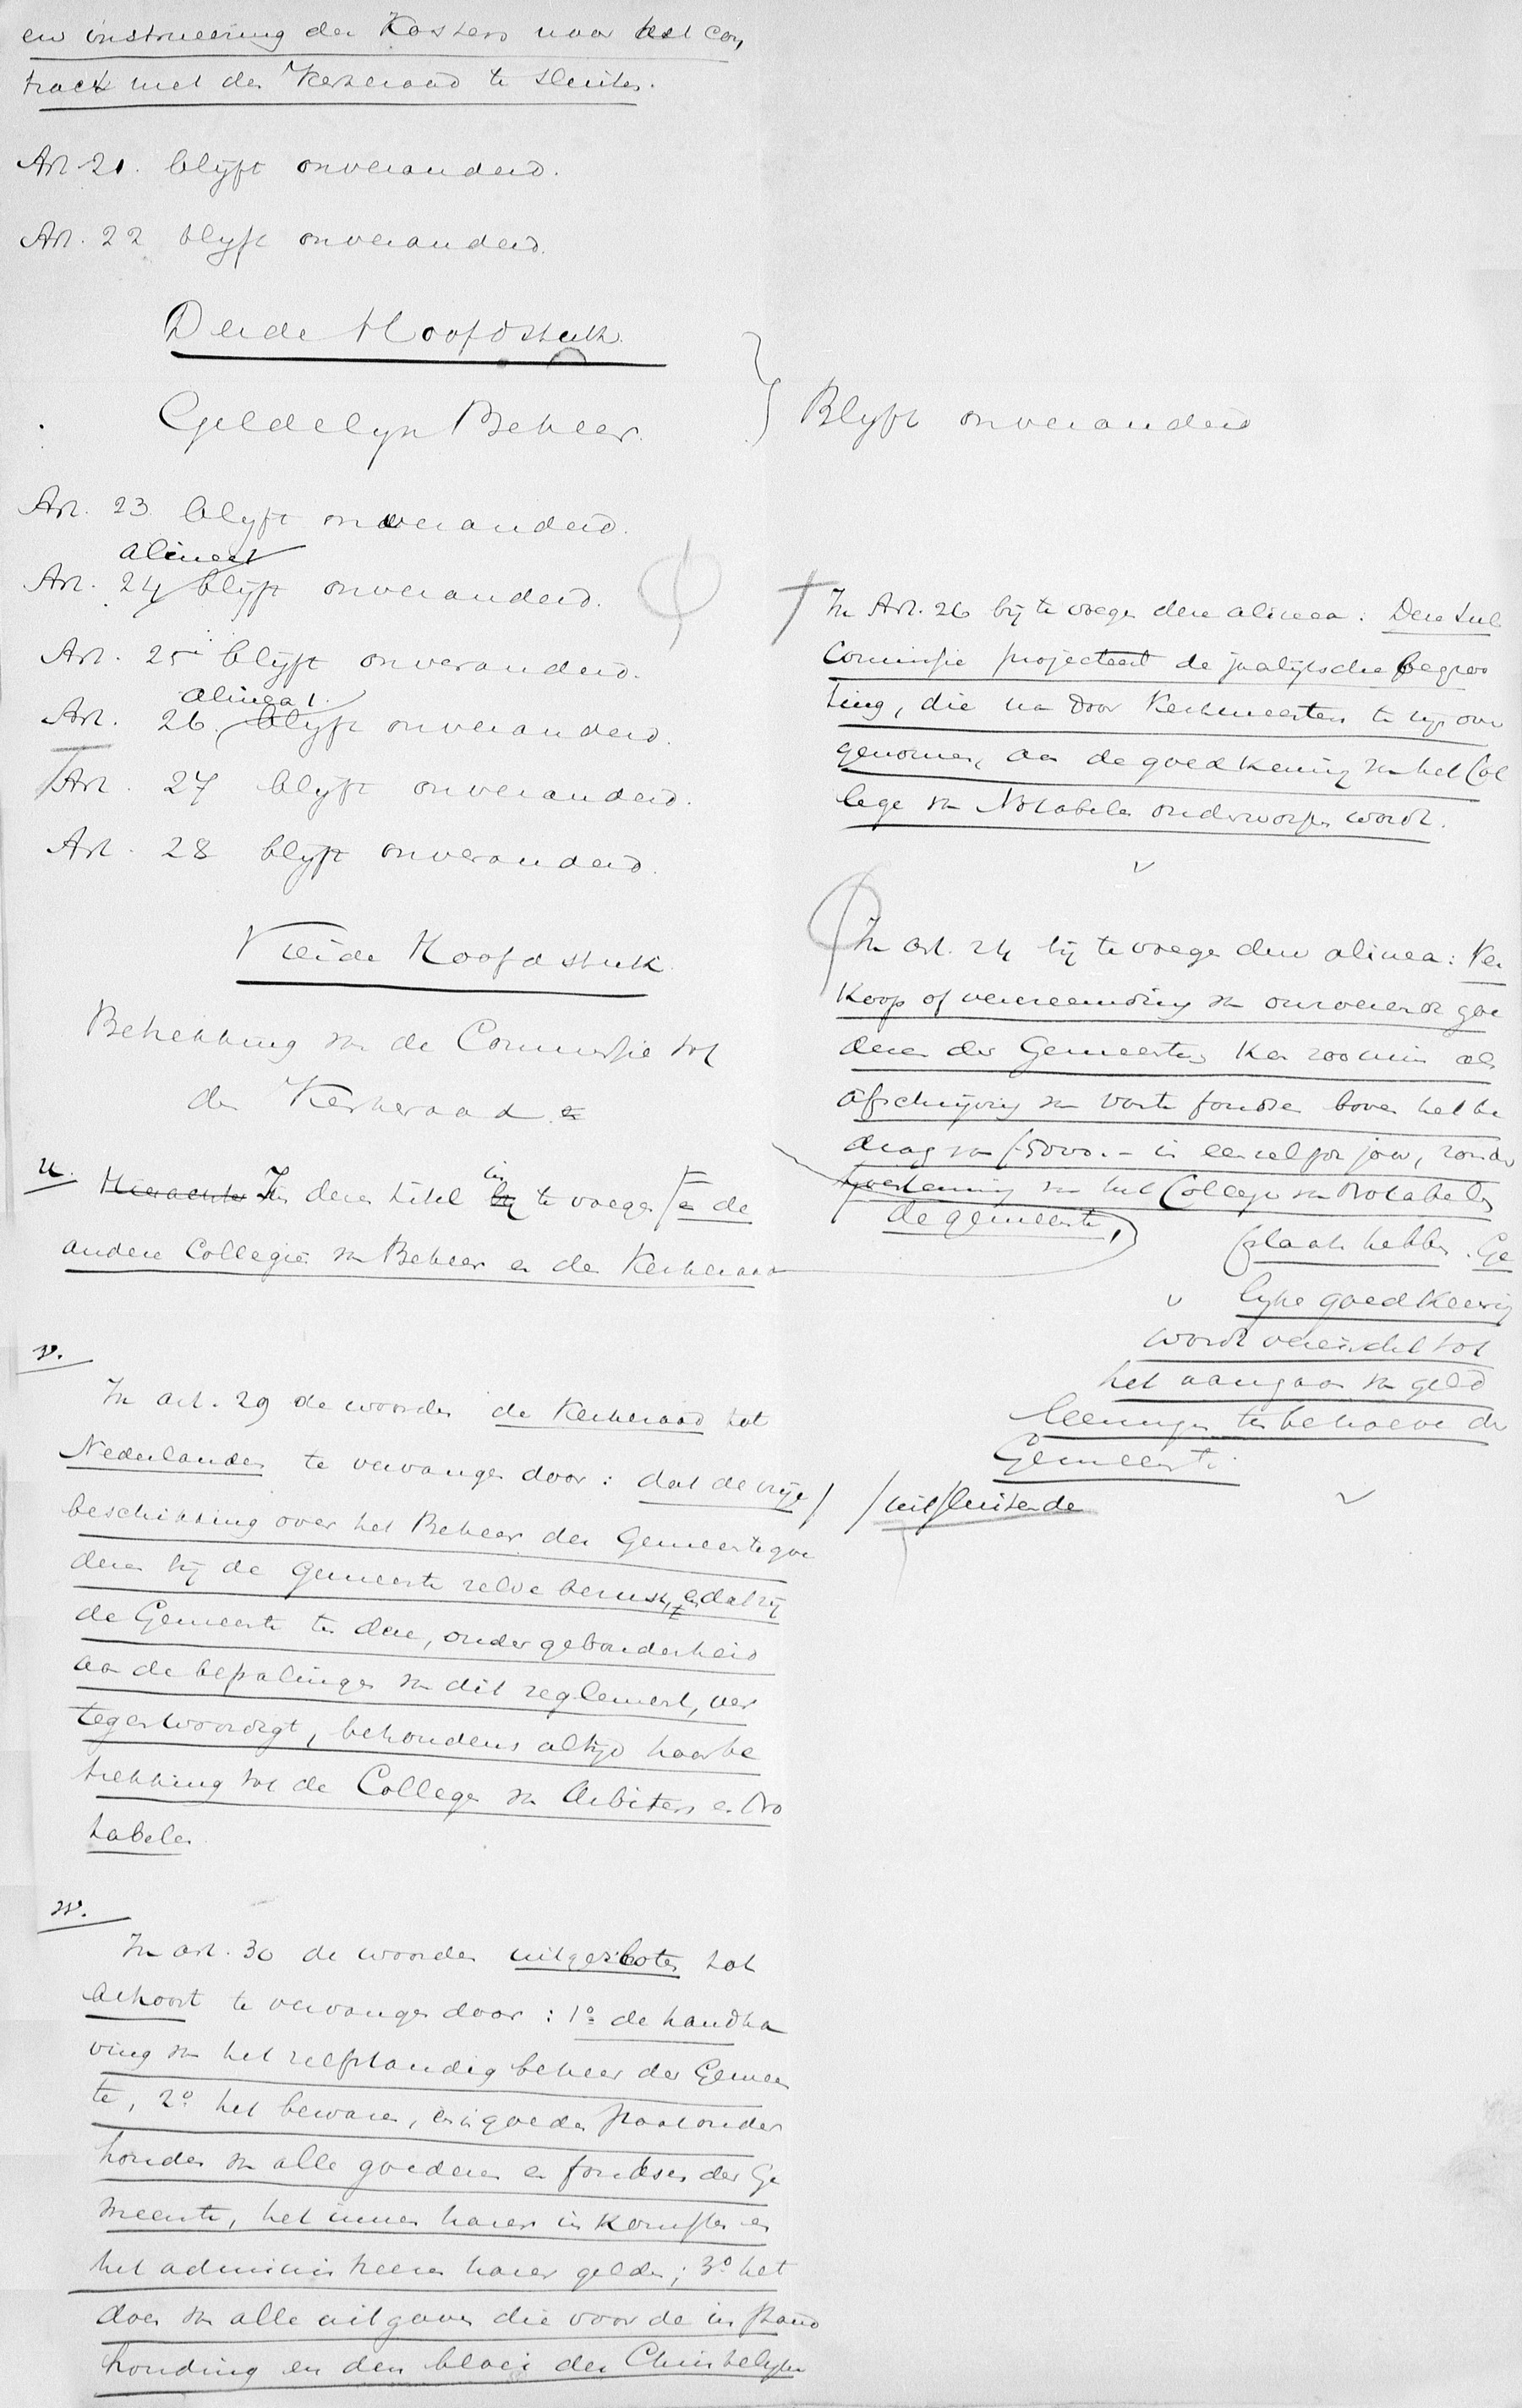 en instrueering der Kosters naar het con,
tract met den Kerkeraad te sluiten.
Art 21. blijft onveranderd.
Art. 22 blijft onveranderd.
Derde Hoofdstuk.
Geldelijk Beheer.
Art. 23 blijft onveranderd.
alinea 1
Art. 24 blijft onveranderd.
Art. 25 blijft onveranderd.
alinea 1.
Art. 26. blijft onveranderd.
Art. 27 blijft onveranderd.
Art. 28 blijft onveranderd.
Vierde Hoofdstuk.
Betrekking van de Commissie tot
den Kerkeraad
u. Hierachter In dezen titel bij in te voegen en de
andere Collegiën van Beheer en den Kerkeraad
v.
In art. 29 de woorden de Kerkeraad tot
Nederlanden te vervangen door: dat de vrije
beschikking over het Beheer der Gemeentegoe
deren bij de Gemeente zelve berust, en dat zij
de Gemeente ten deze, onder gebondenheid
aan de bepalingen van dit reglement, ver
tegenwoordigt, behoudens altijd haar be
trekking tot de Colleges van Arbiters en No
tabelen.
w.
In art. 30 de woorden uitgesloten tot
behoort te vervangen door: 1º de handha
ving van het zelfstandig beheer der Gemeen
te, 2º het bewaren, en in goeden staat onder
houden van alle goederen en fondsen der Ge
meente, het innen harer inkomsten en
het administreeren harer gelden; 3º het
doen van alle uitgaven die voor de in stand
houding en den bloei der Christelijke
Blijft onveranderd
In Art. 26 bij te voegen deze alinea: Deze sub
Commissie projecteert de jaarlijksche begroo
ting, die na door Kerkmeesters te zijn over
genomen, aan de goedkeuring van het Col
lege van Notabelen onderworpen wordt.
In art. 24 bij te voegen deze alinea: Ver
koop of vervreemding van onroerende goe
deren der Gemeente kan zoo min als
afschrijving van vaste fondsen boven het be
drag van f 5000.- in eenzelfde jaar, zonder
goedkeuring van het College van Notabelen
de gemeente,
plaats hebben. Ge
lijke goedkeuring
wordt vereischt tot
het aangaan van geld
leeningen ten behoeve der
Gemeente.
/ uitsluitende